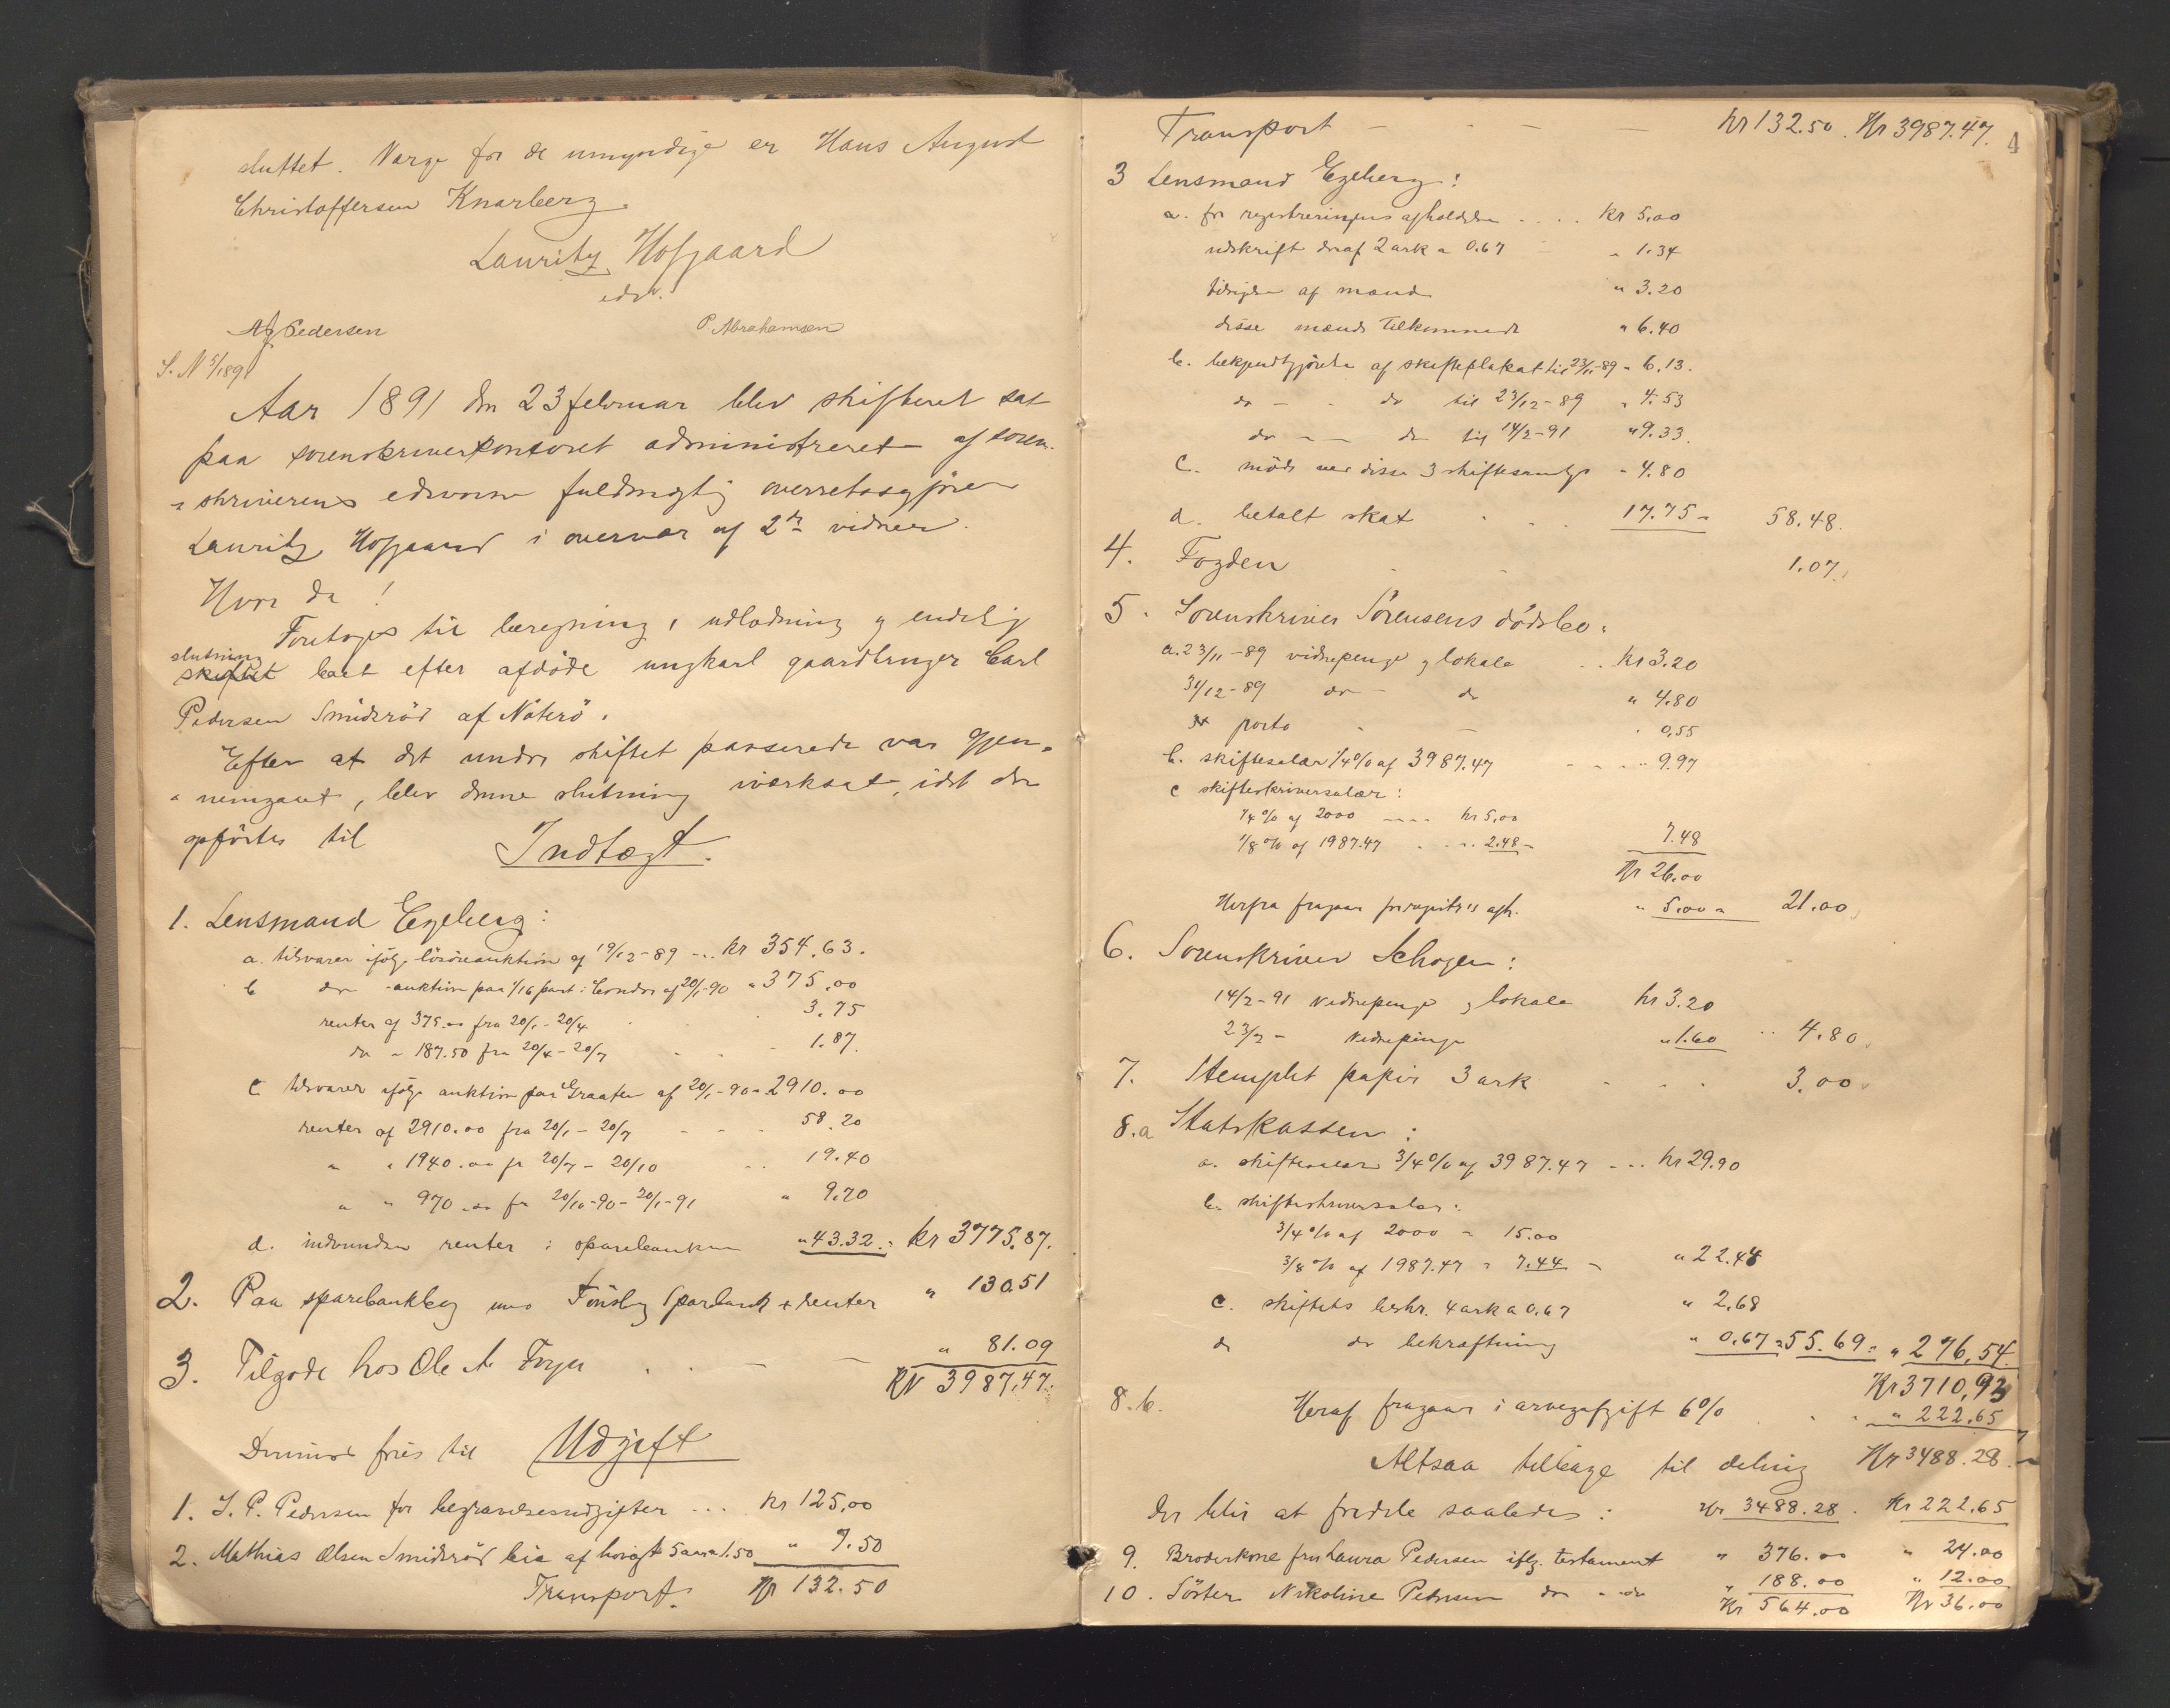 sluttet. Værge for de umyndige er Hans August
Christoffersen Knarberg.
Lauritz Hofgaard
edsv.
Pedersen P Abrahamsen
S. N 5/1891
Aar 1891 den 23 februar blev skifteret sat
paa sorenskriverkontoret administreret af soren-
skriverens edsvorne fuldmægtig overretssagfører
Lauritz Hofgaard i overvær af 2de vidner.
Hvor da!
Foretoges til beregning, udlodning og endelig
slutning
skiftet boet efter afdøde ungkarl gaardbruger Carl
Pedersen Smidsrød af Nøterø.
Efter at det under skiftet passerede var gjen-
nemgaaet, blev denne slutning iværksat, idet der
opførtes til
Indtægt.
1. Lensmand Egeberg:
a. tilsvarer ifølge løsøreauktion af 19/12-89 -.. kr 354.63.
b do -auktion paa 1/16 part i Condor af 20/1-90 " 375.00
renter af 375.00 fra 20/1 - 20/4 3.75
do - 187.50 fra 20/4 - 20/7 1.87.
c tilsvarer ifølge auktion paa Graaten af 20/1-90 - 2910.00
renter af 2910.00 fra 20/1 - 20/7 58.20
" " 1940.00 fr 20/7 - 20/10 19.40
" " 970.00 fr 20/10-90 - 20/1-91 " 9.70
d. indvundne renter i sparebanken " 43.32 = kr 3775.87.
2. Paa sparebankbog mod Tønsberg Sparebank + renter " 130.51
3. Tilgode hos Ole A. Foyn " 81.09
Kr 3987.47.
Derimod føres til Udgift
1. J. P. Pedersen for begravelsesudgifter ... kr 125.00
2. Mathias Olsen Smidsrød leie af horigt 5 aar a 1.50 " 7.50
Transport. Kr 132.50
Transport - - - kr 132.50. Kr 3987.47. 4
3 Lensmand Egeberg:
a. for registreringens afholdelse .... kr 5.00
udskrift deraf 2 ark a 0.67 " 1.34
tilsigelse af mænd " 3.20
disse mænds tilkommende " 6.40
b. bekjendtgjørelse af skifteplakat til 23/11-89 " 6.13.
do - - do til 23/12-89 " 4.53
do - - do til 14/2-91 " 9.33.
C. møde ved disse 3 skiftesamlgr " 4.80
d. betalt skat 17.75 = 58.48.
4. Fogden 1.07.
5. Sorenskriver Sørensens dødsbo:
a. 23/11-89 vidnepenge og lokale .. kr 3.20
31/12-89 do - do " 4.80
porto 0,55
b. skiftesalær 1/4 % af 3987.47 9.97
c skifteskriversalær:
1/4 % af 2000 .... kr 5.00
1/8 % af 1987.47 .... 2.48 = 7.48
Kr 26.00
Herfra fragaar " 5.00 = 21.00
6. Sorenskriver Schogen:
14/2-91 vidnepenge og lokale kr 3.20
23/2 - vidnepenge " 1.60 .. 4.80
7. Stemplet papir 3 ark 3.00
8.a Statskassen:
a. skiftesalær 3/4 % af 3987.47 ... kr 29.90
b. skifteskriversalær:
3/4 % af 2000 = 15.00
3/8 % af 1987.47 = 7.44 = " 22.44
c. skiftets beskr. 4 ark a 0.67 " 2.68
d do bekræftning " 0.67 = 55.69 = " 276,54.
Kr 3710,93
8.b. Heraf fragaar i arvegafgift 6% " 222.65
Altsaa tilbage til deling Kr 3488.28
der blir at fordele saaledes: Kr 3488.28. Kr 222.65
9. Broderkone fru Laura Pedersen iflg. testament " 376.00 " 24.00
10. Søster Nikoline Pedersen do - do " 188.00 " 12.00
Kr 564.00 Kr 36.00